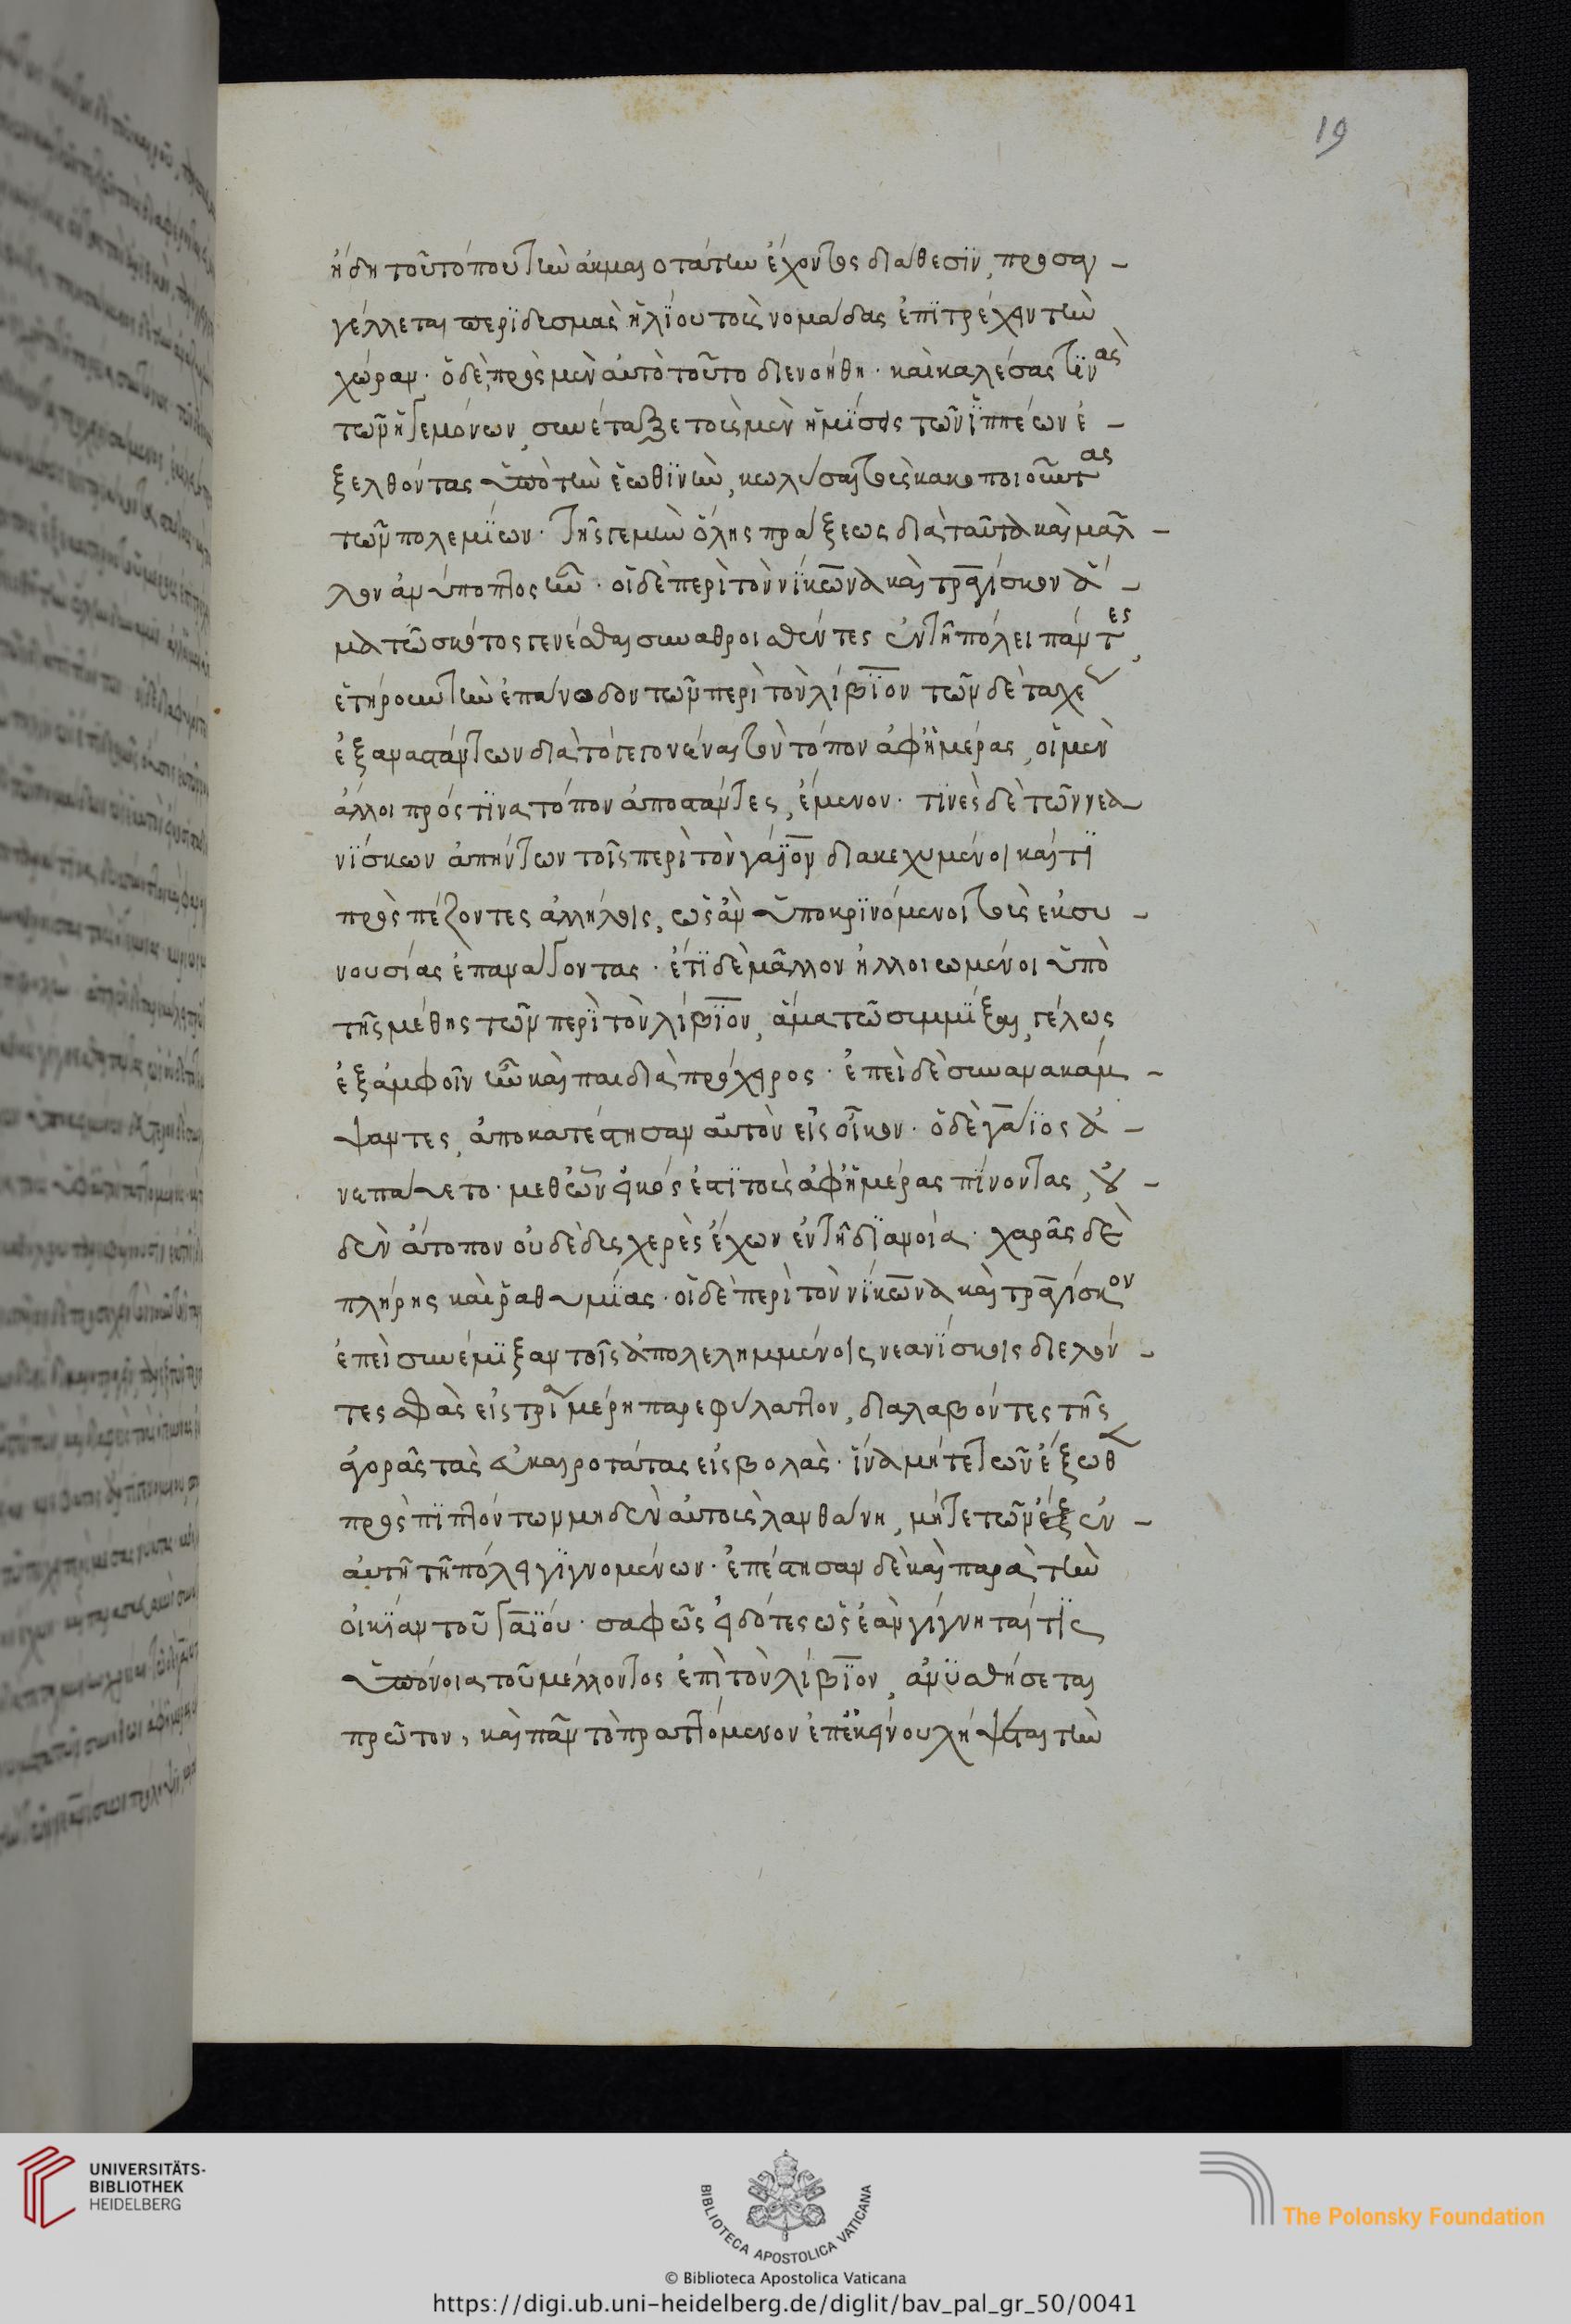 19
ἤδη τοῦ πότου τὴν ἀκμαιοτάτην ἔχοντος διάθεσιν, προσαγ-
γέλλεται περὶ δυσμὰς ἡλίου τοὺς νομάδας ἐπιτρέχειν τὴν
χώραν· ὁ δὲ πρὸς μὲν αὐτὸ τοῦτο διενοήθη· καὶ καλέσας τινὰς
τῶν ἡγεμόνων, συνέταξε τοὺς μὲν ἡμίσεις τῶν ἱππέων ἐ-
ξελθόντας ὑπὸ τὴν ἑωθινὴν, κωλῦσαι τοὺς κακοποιοῦντας
τῶν πολεμίων· τῆς γε μὴν ὅλης πράξεως διὰ ταῦτα καὶ μᾶλ-
λον ἀνύποπτος ἦν· οἱ δὲ περὶ τὸν νίκωνα καὶ τραγίσκον ἅ-
μα τῷ σκότος γενέσθαι συναθροισθέντες ἐν τῇ πόλει πάντες,
ἐτήρουν τὴν ἐπάνοδον τῶν περὶ τὸν λίβιον τῶν δὲ ταχέως
ἐξαναστάντων διὰ τὸ γεγονέναι τὸν τόπον ἀφ' ἡμέρας, οἱ μὲν
ἄλλοι πρός τινα τόπον ἀποστάντες, ἔμενον· τινὲς δὲ τῶν νεα
νίσκων ἀπήντων τοῖς περὶ τὸν γάϊον διακεχυμένοι καί τι
προσπαίζοντες ἀλλήλοις, ὡς ἂν ὑποκρινόμενοι τοὺς ἐκ συ-
νουσίας ἐπανάγοντας· ἔτι δὲ μᾶλλον ἠλλοιωμένοι ὑπὸ
τῆς μέθης τῶν περὶ τὸν λίβιον, ἅμα τῷ συμμίξαι, γέλως
ἐξ ἀμφοῖν ἦν καὶ παιδιὰ πρόχειρος· ἐπεὶ δὲ συνανακάμ-
ψαντες, ἀποκατέστησαν αὐτὸν εἰς οἶκον· ὁ δὲ γάϊος ἀ-
νεπαύετο· μεθύων εἰκός ἐστι τοὺς ἀφ' ἡμέρας πίνοντας, οὐ-
δὲν ἄτοπον οὐδὲ δυσχερὲς ἔχων ἐν τῇ διανοίᾳ· χαρᾶς δὲ
πλήρης καὶ ῥαθυμίας· οἱ δὲ περὶ τὸν νίκωνα καὶ τραγίσκον
ἐπεὶ συνέμιξαν τοῖς ἀπολελημμένοις νεανίσκοις διελόν-
τες σφᾶς εἰς τρία μέρη παρεφύλαττον, διαλαβόντες τῆς
ἀγορᾶς τὰς εὐκαιροτάτας εἰσβολάς· ἵνα μήτε τῶν ἔξωθεν
προσπιπτόντων μηδὲν αὐτοὺς λανθάνῃ, μήτε τῶν ἐξ ἐν-
αὐτῇ τῇ πόλει γιγνομένων· ἐπέστησαν δὲ καὶ παρὰ τὴν
οἰκίαν τοῦ γαΐου· σαφῶς εἰδότες ὡς ἐὰν γίγνηταί τις
ὑπόνοια τοῦ μέλλοντος ἐπὶ τὸν λίβιον, ἀνϋσθήσεται
πρῶτον, καὶ πᾶν τὸ πραττόμενον ἐπ' ἐκείνου λήψεται τὴν
UNIVERSITÄTS-
BIBLIOTHEK
HEIDELBERG
BIBLIOTECA APOSTOLICA VATICANA
The Polonsky Foundation
© Biblioteca Apostolica Vaticana
https://digi.ub.uni-heidelberg.de/diglit/bav_pal_gr_50/0041